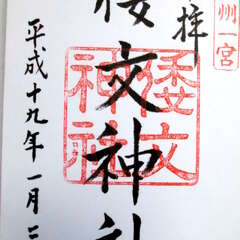 州一宮
拝
倭文神社
倭文
神社
平成十九年一月二